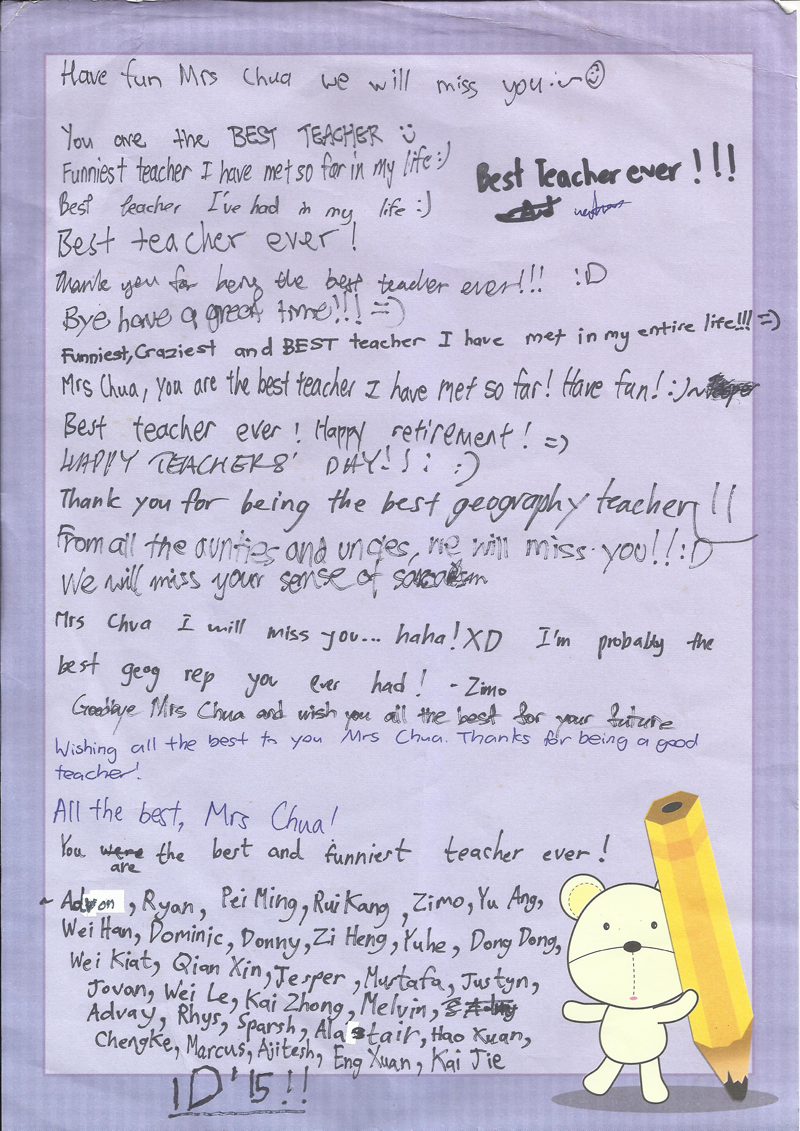 Have fun Mrs Chua we will miss you :~ ☺
You are the BEST TEACHER Ü
Funniest teacher I have met so far in my life :)
Best Teacher ever!!!
Best teacher I've had in my life :)
Best teacher ever!
Thank you for being the best teacher ever!!! :D
Bye have a great time!!! =)
Funniest, Craziest and BEST teacher I have met in my entire life!!! =)
Mrs Chua, you are the best teacher I have met so far! Have fun! :)~
Best teacher ever! Happy retirement! =)
HAPPY TEACHERS' DAY!!! :)
Thank you for being the best geography teacher!!
From all the aunties and uncles, we will miss you!! :D
We will miss your sense of sarcasm
Mrs Chua I will miss you... haha! XD I'm probably the
best geog rep you ever had! - Zimo
Goodbye Mrs Chua and wish you all the best for your future
Wishing all the best to you Mrs Chua. Thanks for being a good
teacher!
All the best, Mrs Chua!
You were the best and funniest teacher ever!
are
~ Advon, Ryan, Pei Ming, Rui Kang, Zimo, Yu Ang,
Wei Han, Dominic, Donny, Zi Heng, Yuhe, Dong Dong,
Wei Kiat, Qian Xin, Jesper, Mustafa, Justyn,
Jovan, Wei Le, Kai Zhong, Melvin,
Advay, Rhys, Sparsh, Alastair, Hao Xuan,
Chengke, Marcus, Ajitesh, Eng Xuan, Kai Jie
1D'15!!